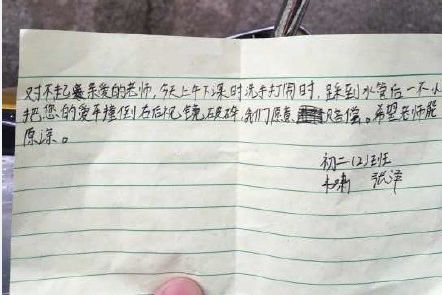 对不起亲爱的老师，今天上午下课时洗手打闹时，踩到水管后一不小
把您的爱车撞倒右后视镜破碎，我们愿意赔偿。希望老师能
原谅。
初二(2)班
张泽